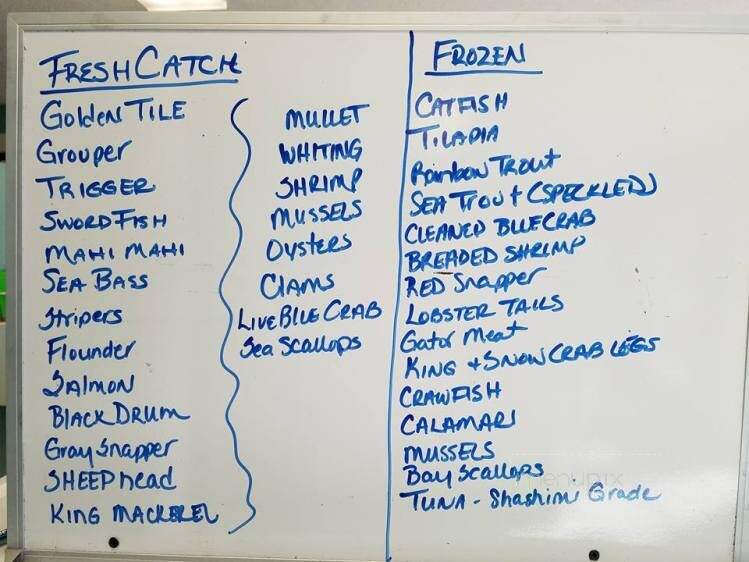 FRESH CATCH
Golden TILE
Grouper
TRIGGER
SWORD FISH
MAHI MAHI
SEA BASS
Stripers
Flounder
SAlmon
BLACK DRUM
Gray Snapper
SHEEP head
KING MACKEREL
MULLET
WHITING
SHRIMP
MUSSELS
OYSTERS
CLAMS
LIVE BLUE CRAB
Sea Scallops
FROZEN
CATFISH
TILAPIA
Rainbow Trout
SEA TROUT (SPECKLED)
CLEANED BLUE CRAB
BREADED SHRIMP
RED Snapper
LOBSTER TAILS
Gator Meat
KING + SNOW CRAB LEGS
CRAWFISH
CALAMARI
MUSSELS
Bay Scallops
TUNA - Shashimi Grade
menupix